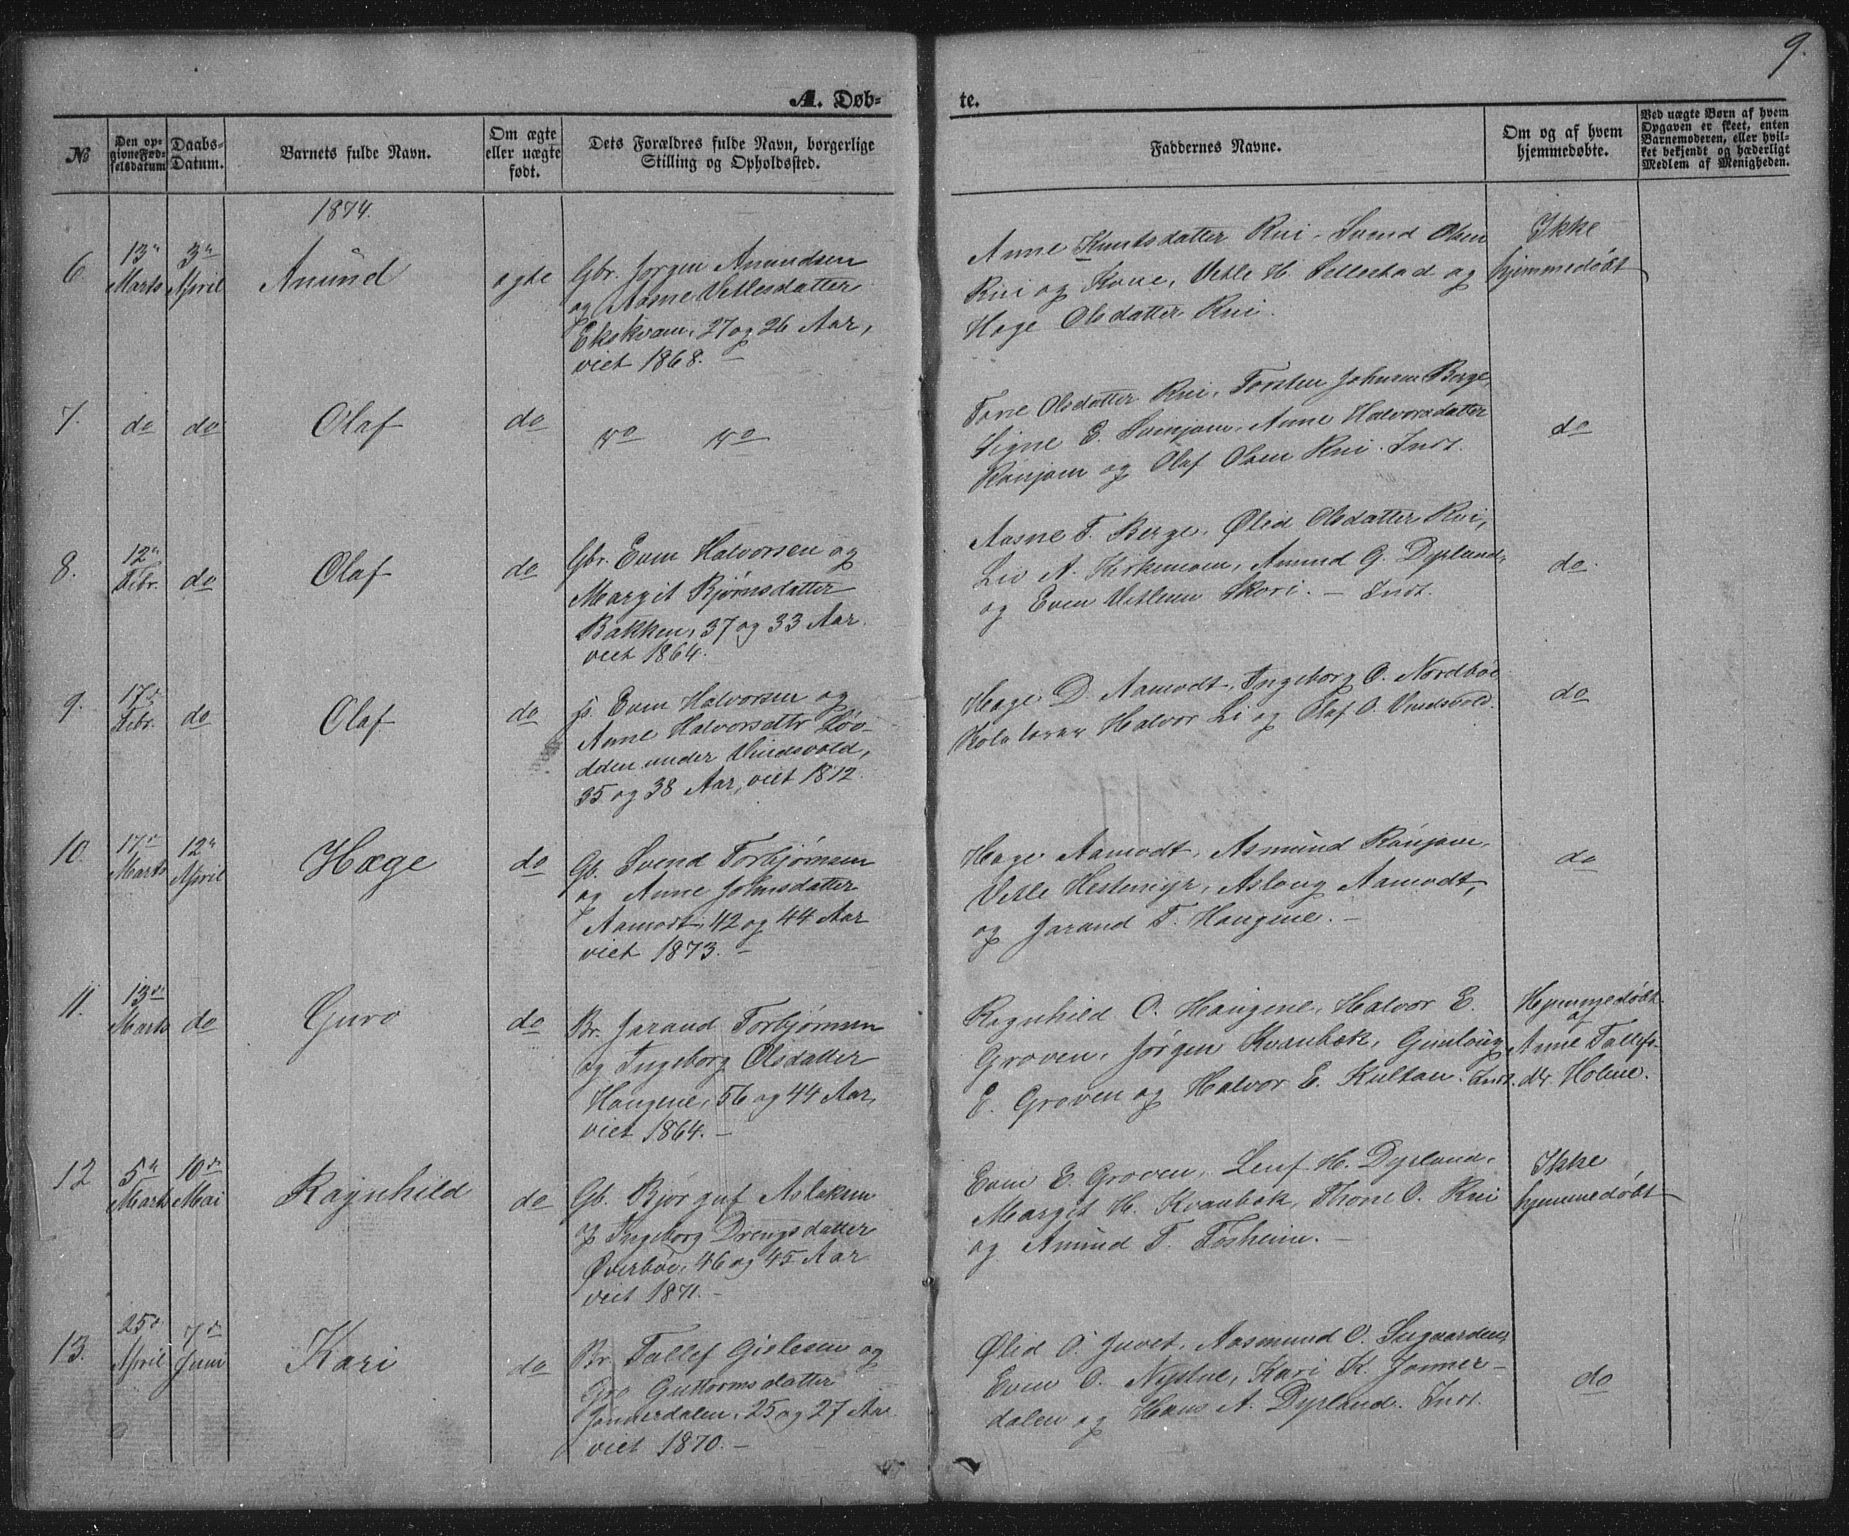 9.
A. Døb-
te.
№
Den op-
givne Fød-
selsdatum
Daabs-
Datum.
Barnets fulde Navn.
Om ægte
eller uægte
født.
Dets Forældres fulde Navn, borgerlige
Stilling og Opholdssted.
Faddernes Navne.
Om og af hvem
hjemmedøbte.
Ved uægte Børn af hvem
Opgaven er skeet, enten
Barnemoderen, eller hvil-
ket bekjendt og hæderligt
Medlem af Menigheden.
1874.
6
13de
Marts
3de
April
Amund
ægte
Gbr. Jørgen Amundsen
og Aasne Vetlesdatter
Ekskvam, 27 og 26 Aar,
viet 1868. –
Anne Knutsdatter Rui, Svend Olsen
Rui og Kone, Vetle H. Sellestad og
Hæge Olsdatter Rui.
Ikke
hjemmedøbt
7.
do
do
Olaf
do
do do
Tone Olsdatter Rui, Torsten Johnsen Berge,
Signe E. Sønjom, Anne Halvorsdatter
Rønjom og Olaf Olsen Rui. Indt.
do
8.
12te
Febr.
do
Olaf
do
Gbr. Even Halvorsen og
Margit Bjørnsdatter
Bakken, 37 og 33 Aar.
viet 1864.
Aasne T. Berge, Ølid Olsdatter Rui,
Liv A. Kirkemoen, Amund G. Dyrland,
og Even Vetlesen Skori. – Indt.
do.
9.
17de
Febr.
do
Olaf
do
Even Halvorsen og
Anne Halvorsdttr Lø-
dden under Vindsvold,
35 og 38 Aar, viet 1872.
Hæge D. Aamodt, Ingeborg O. Nordbøe
Halvor Li og Olaf O. Vindsvold.
do
10.
17de
Marts
12te
April
Hæge
do
Gb. Svend Torbjørnsen
og Anne Johnsdatter
Aamodt, 42 og 44 Aar
viet 1873. –
Hæge Aamodt, Asmund Rønjom,
Vetle Hestemyr, Aslaug Aamodt,
og Jarand T. Haugene. –
do
11.
13de
Marts
do
Guro
do
Br. Jarand Torbjørnsen
og Ingeborg Olsdatter
Haugene, 56 og 44 Aar,
viet 1864. –
Ragnhild O. Haugene, Halvor E.
Groven, Jørgen Kvanbek, Gunloug
E. Groven og Halvor E. Kultan. Indt.
Hjemmedøbt
af
Anne Tallefs-
dtr Holme.
12
5te
Marts
10de
Mai
Ragnhild
do
Gb. Bjørguf Aslaksen
og Ingeborg Drengsdatter
Øverbøe, 46 og 45 Aar
viet 1871. –
Even E. Groven, Leuf H. Dyrland,
Margit H. Kvanbek, Thone O. Rui
og Amund T. Fosheim. –
Ikke
hjemmedøbt
13.
25de
April
7de
Juni
Kari
do
Br. Tallef Gislesen og
Gro Guttormsdatter
Jønnerdalen, 25 og 27 Aar.
viet 1870. –
Ølid O. Juvet, Aasmund O. Sugaarden,
Even O. Nystue, Kari K. Jønner-
dalen og Hans A. Dyrland. Indt.
do